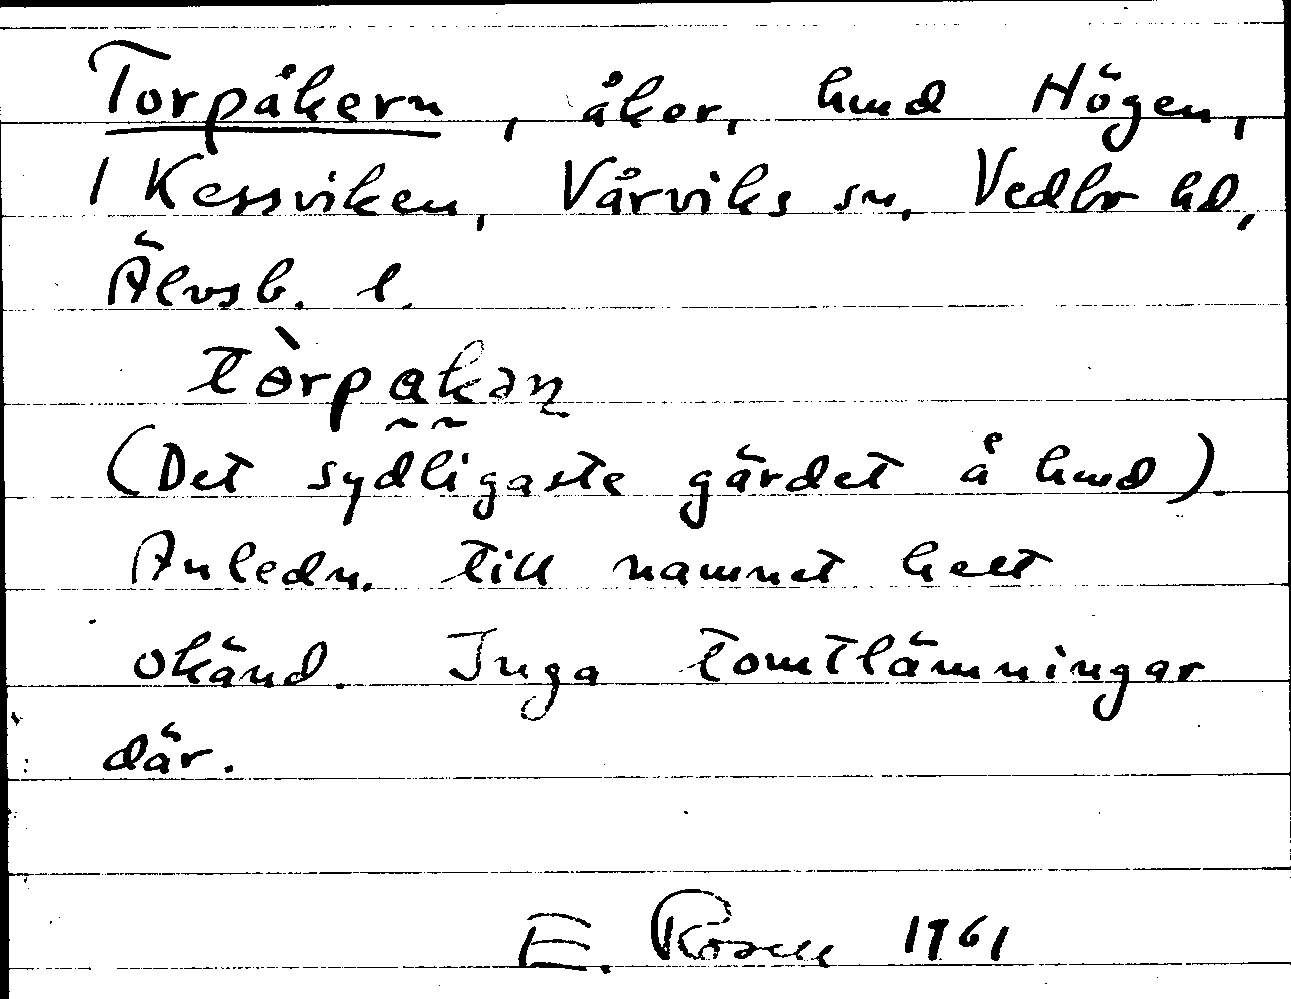 Torpåkern, åker, hmd Högen,
1 Kessviken, Vårviks sn, Vedbo hd,
Älvsb. l.
tòrpakəɳ
(Det sydligaste gärdet å hmd).
Anledn. till namnet helt
okänd. Inga tomtlämningar
där.
E. Rosell 1961